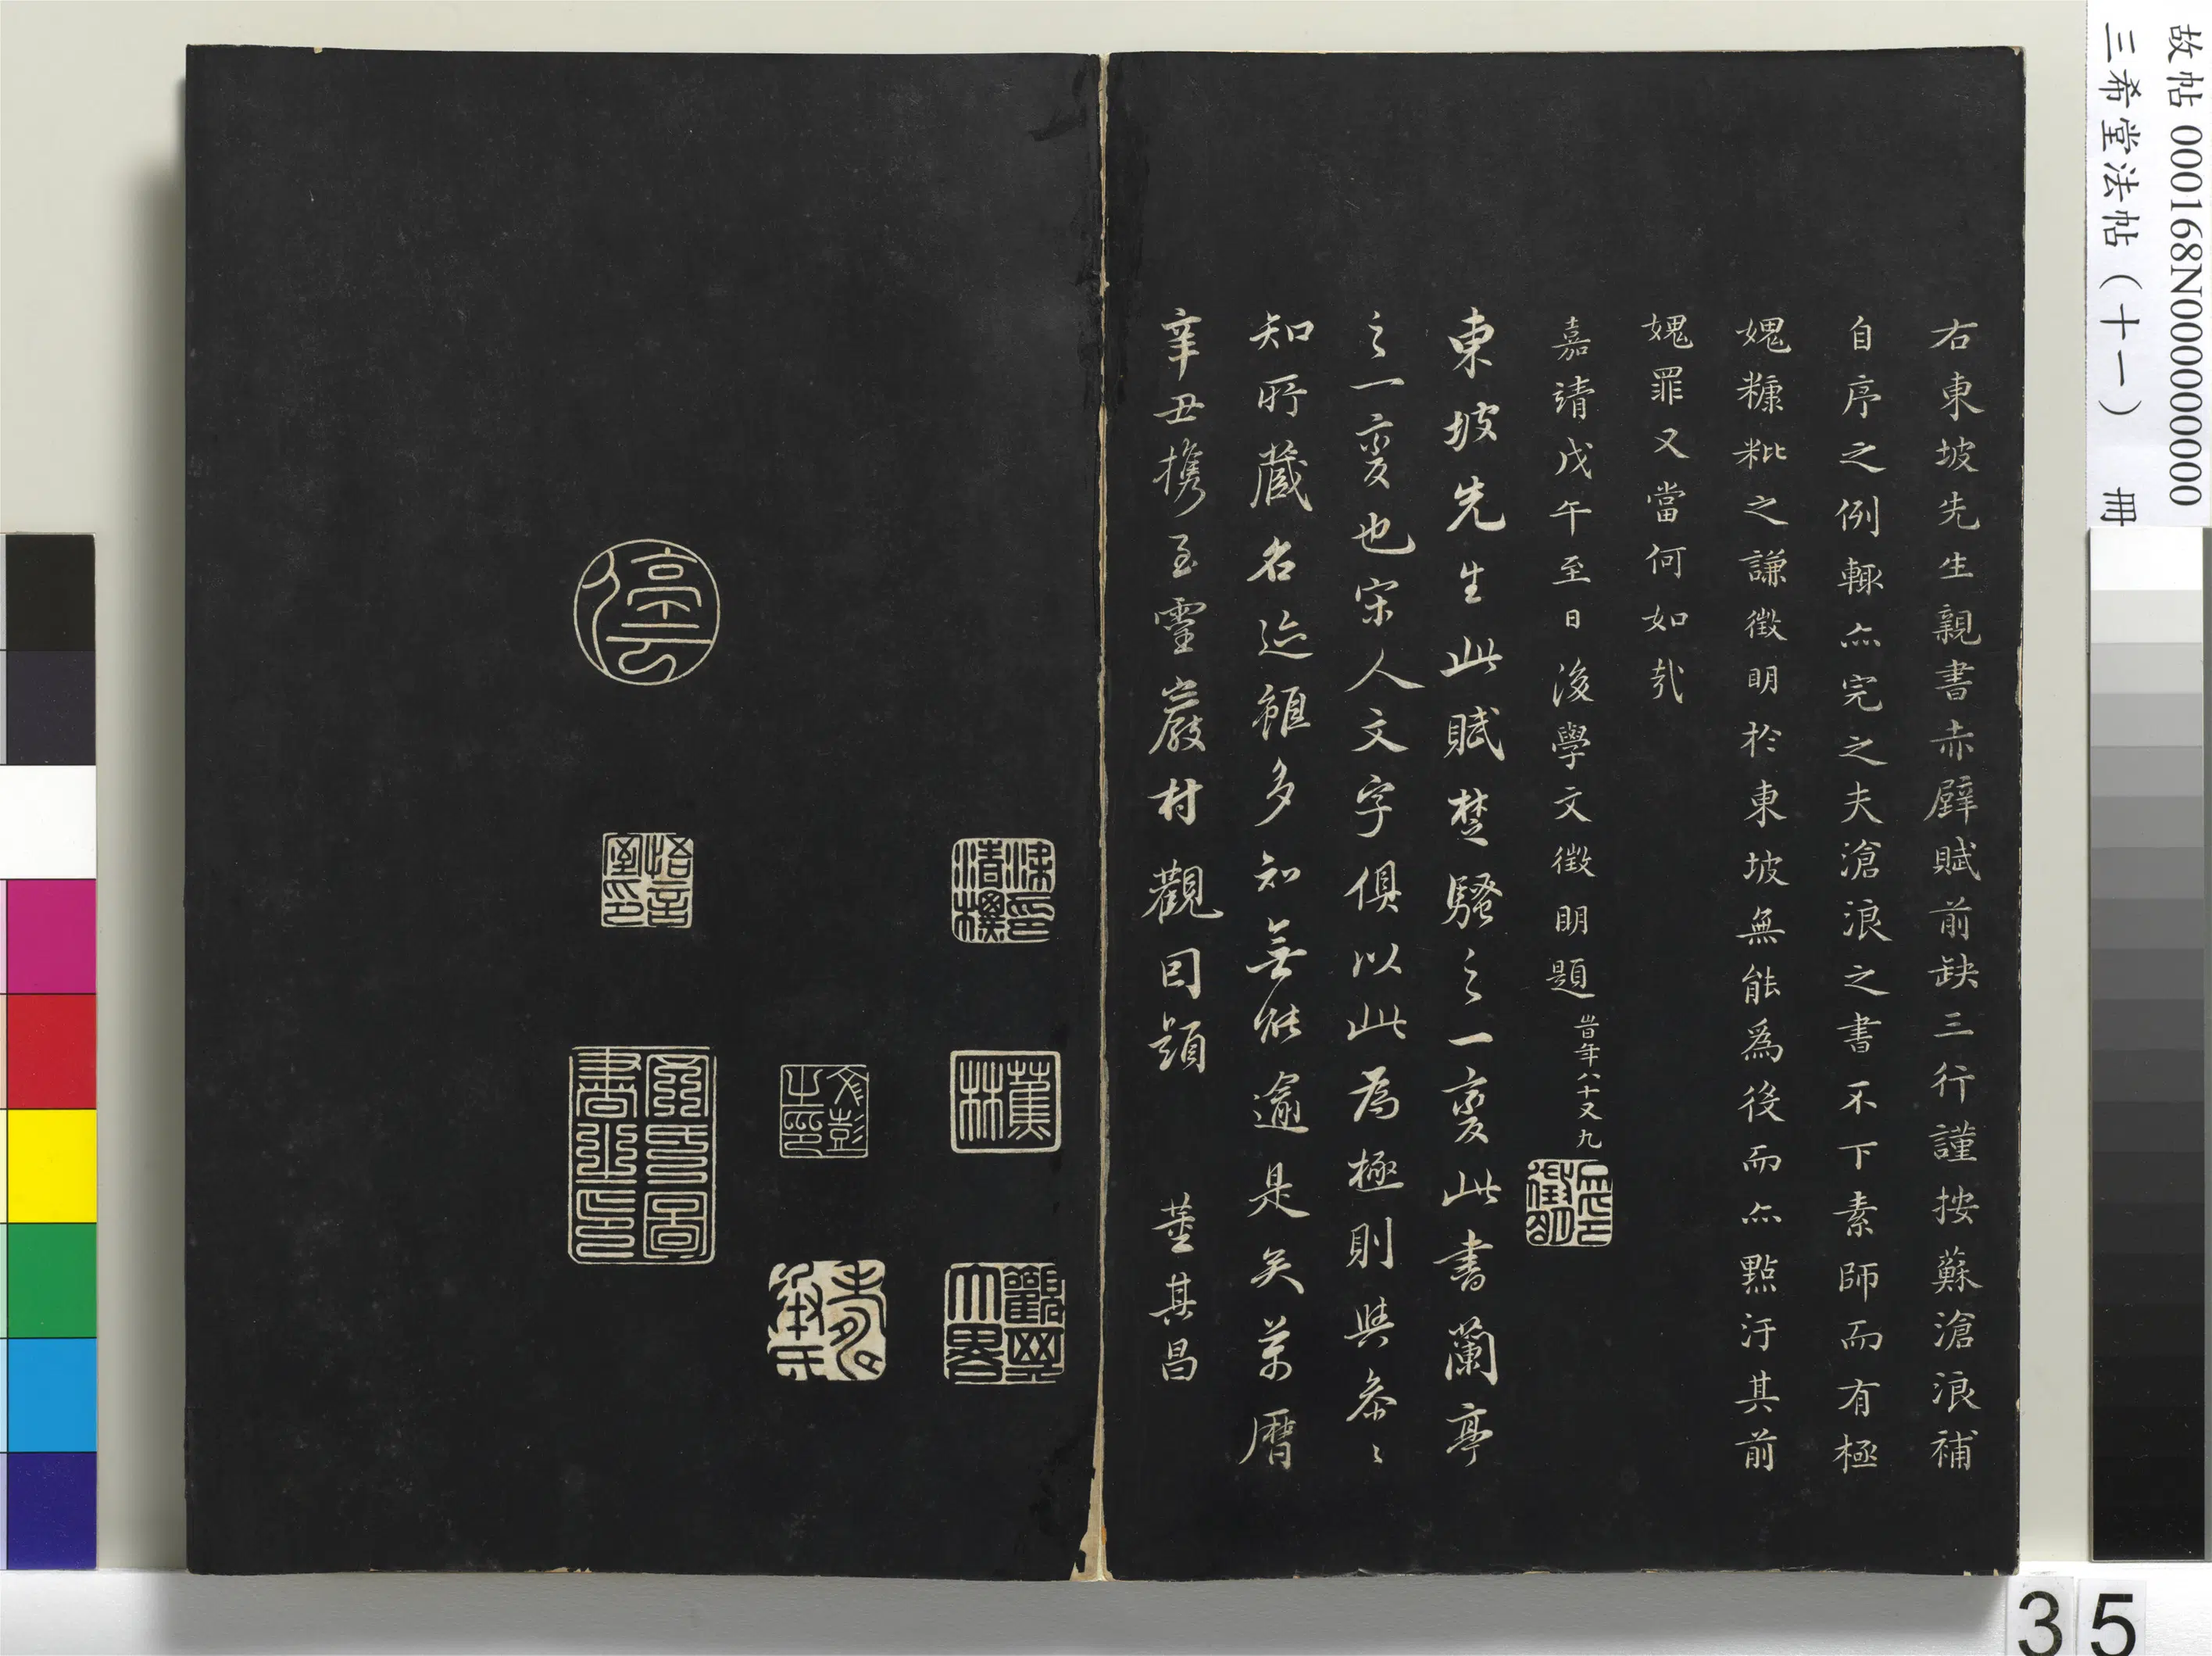 故帖 000168N000000000
三希堂法帖（十一） 冊
右東坡先生親書赤壁賦前缺三行謹按蘇滄浪補
自序之例輒亦完之夫滄浪之書不下素師而有極
媿糠粃之謙徵明於東坡無能為後而亦點汙其前
媿罪又當何如哉
嘉靖戊午至日後學文徵明題 時年八十又九
東坡先生此賦楚騷之一變此書蘭亭
之一變也宋人文字俱以此為極則與參參
知所藏名迹雖多知無能逾是矣萬曆
辛丑攜至靈巖村觀因題 董其昌
蕉林
觀其大略
文彭之印
悟言室印
停雲
35